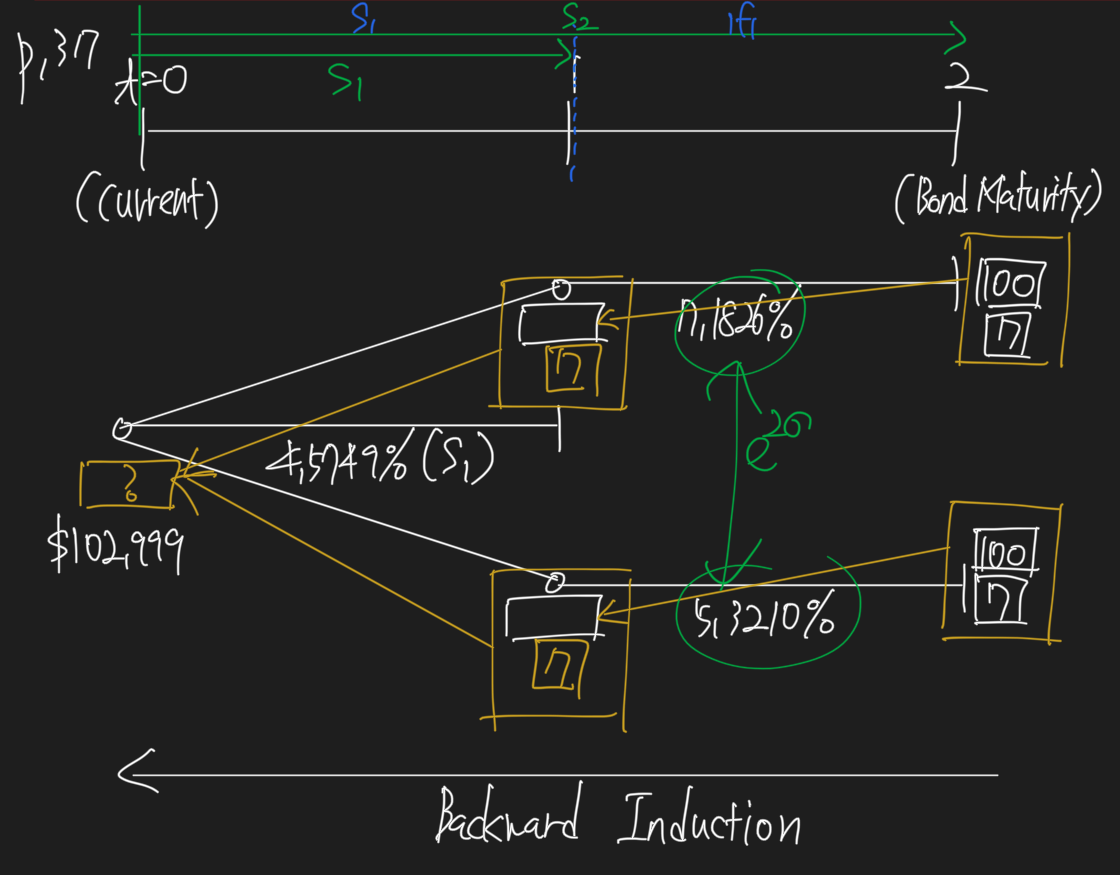 S₁ S₂ ₁f₁
p.37 t=0 S₁ 2
(Current) (Bond Maturity)
100
7.1826% 7
7
e^2σ
4.5749% (S₁)
?
$102.999
100
5.3210% 7
7
Backward Induction